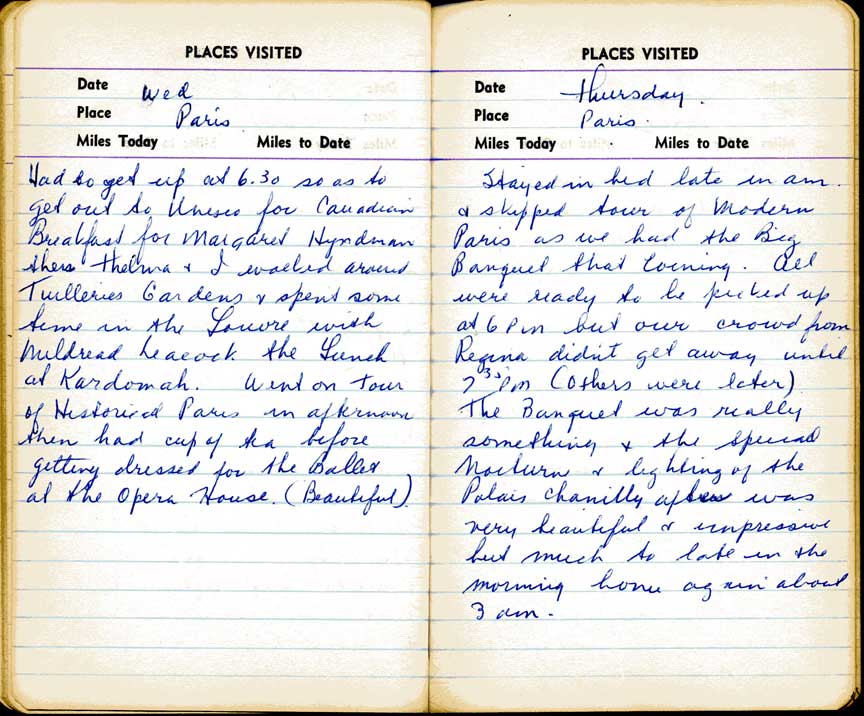 PLACES VISITED
Date Wed
Place Paris
Miles Today Miles to Date
Had to get up at 6.30 so as to
get out to Unesco for Canadian
Breakfast for Margaret Hyndman
then Thelma & I walked around
Tuilleries Gardens & spent some
time in the Louvre with
Mildread Leacock the Lunch
at Kardomah. Went on Tour
of Historical Paris in afternoon
then had cup of tea before
getting dressed for the Ballet
at the Opera House. (Beautiful)
PLACES VISITED
Date Thursday.
Place Paris.
Miles Today Miles to Date
Stayed in bed late in am.
& skipped tour of Modern
Paris as we had the Big
Banquet that Evening. All
were ready to be picked up
at 6 Pm but our crowd from
Regina didn't get away until
7³⁰ Pm (Others were later)
The Banquet was really
something & the special
Nocturn & lighting of the
Palais Chanilly after was
very beautiful & impressive
but much to late in the
morning home again about
3 am.